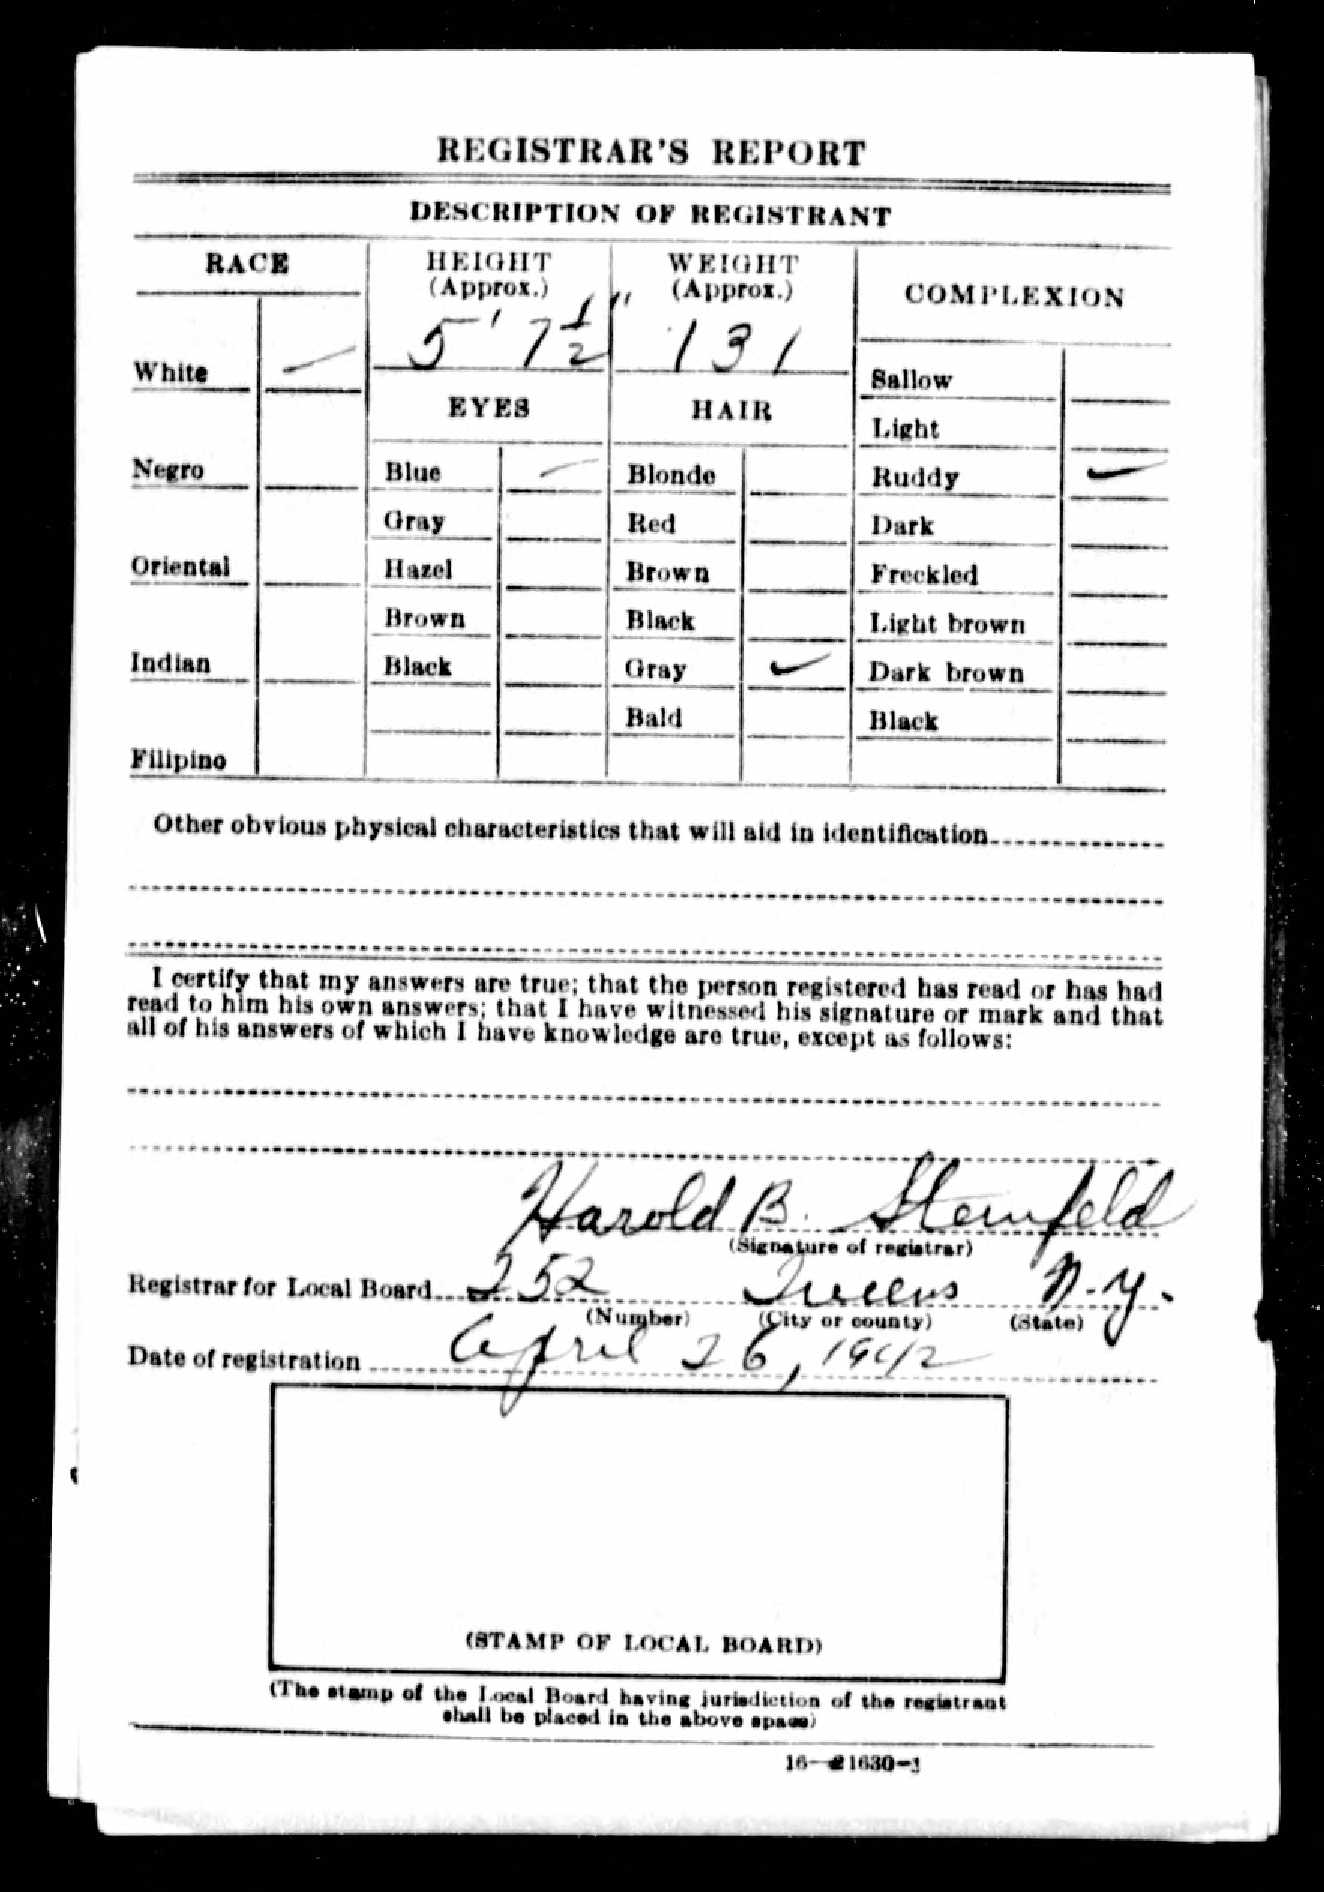 REGISTRAR'S REPORT
DESCRIPTION OF REGISTRANT
RACE
HEIGHT
(Approx.)
WEIGHT
(Approx.)
COMPLEXION
5' 7 1/2"
131
White
EYES
HAIR
Sallow
Light
Negro
Blue
Blonde
Ruddy
Gray
Red
Dark
Oriental
Hazel
Brown
Freckled
Brown
Black
Light brown
Indian
Black
Gray
Dark brown
Bald
Black
Filipino
Other obvious physical characteristics that will aid in identification
I certify that my answers are true; that the person registered has read or has had
read to him his own answers; that I have witnessed his signature or mark and that
all of his answers of which I have knowledge are true, except as follows:
Harold B. Steinfeld
(Signature of registrar)
Registrar for Local Board 252 Queens N.Y.
(Number) (City or county) (State)
Date of registration April 26, 1942
(STAMP OF LOCAL BOARD)
(The stamp of the Local Board having jurisdiction of the registrant
shall be placed in the above space)